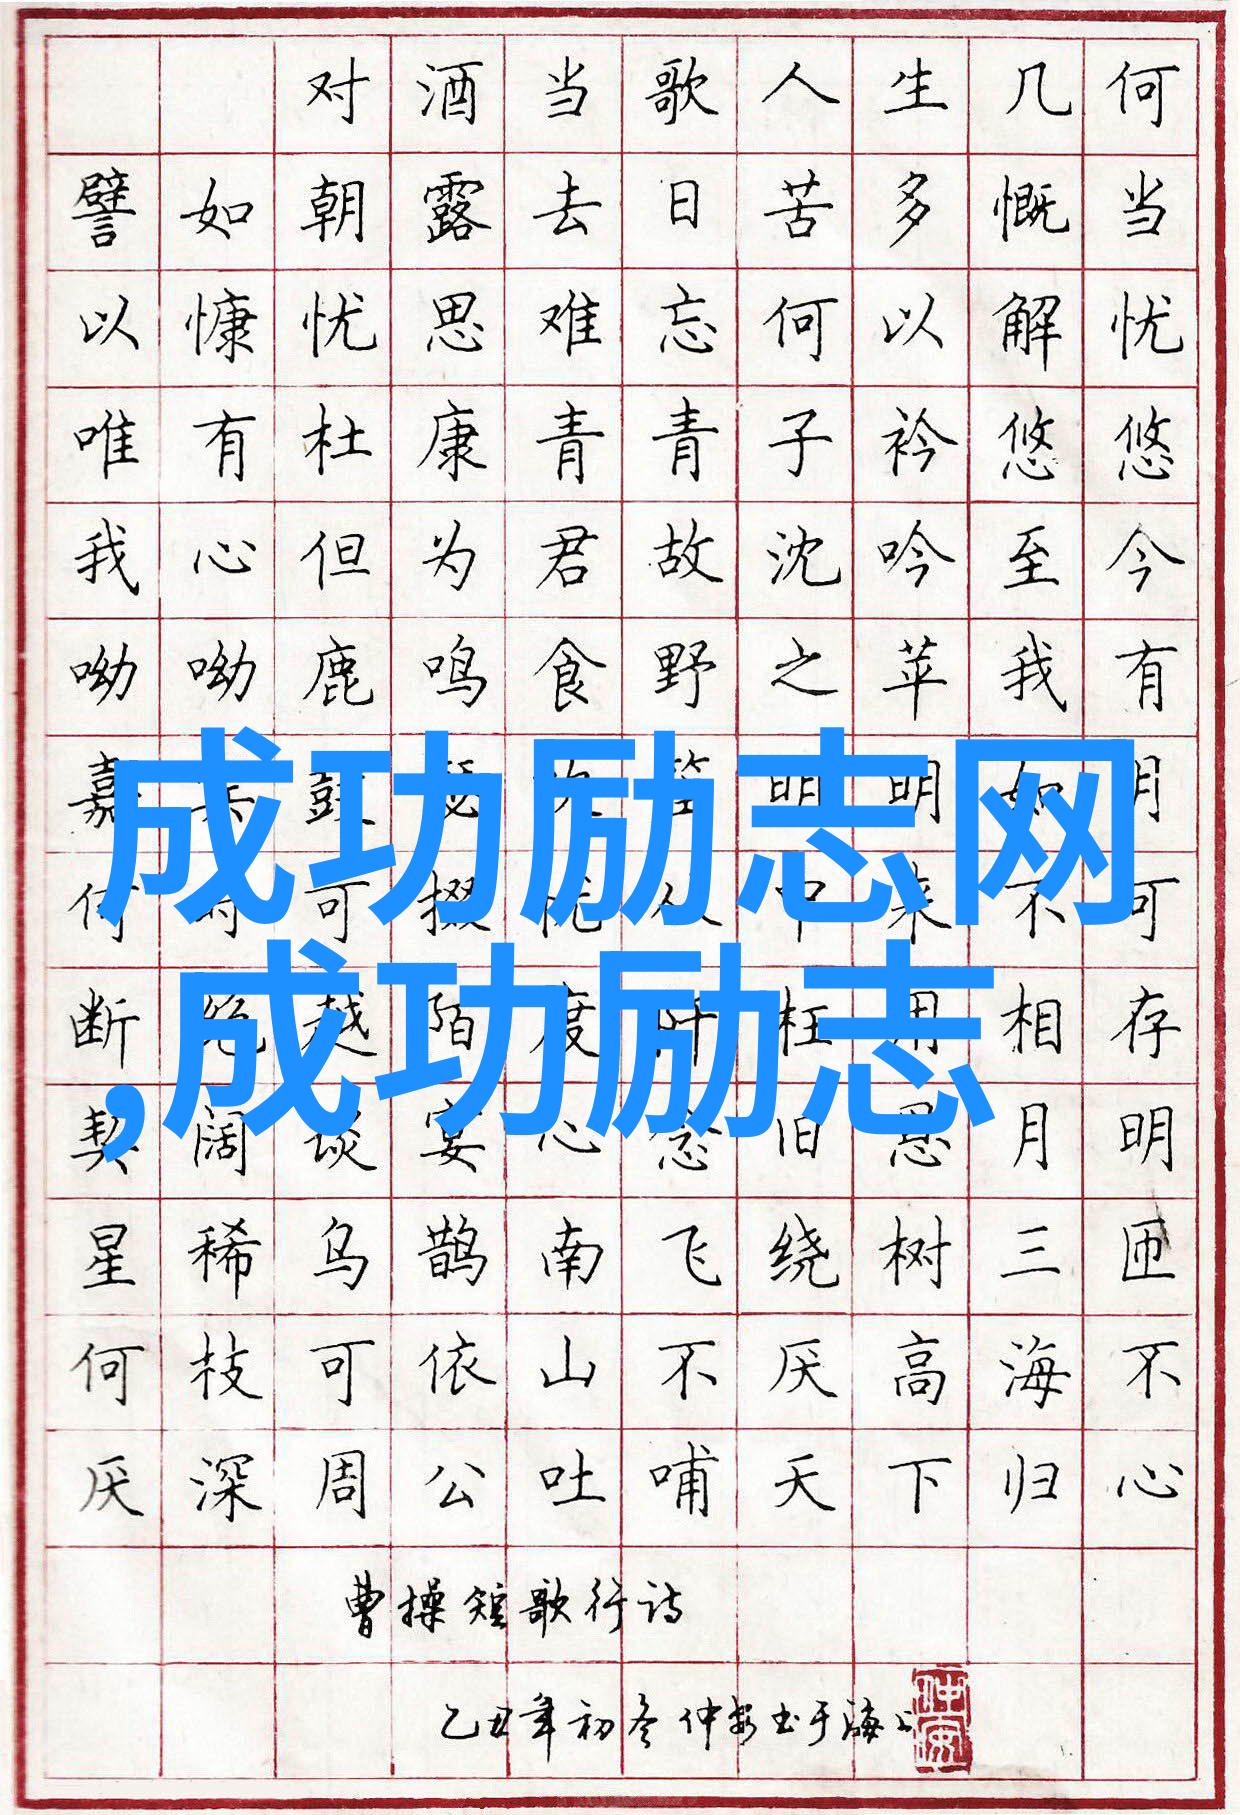 对酒当歌人生几何
譬如朝露去日苦多慨当
以慷忧思难忘何以解忧
唯有杜康青青子衿悠悠
我心但为君故沈吟至今
呦呦鹿鸣食野之苹我有
嘉鼓瑟吹笙明明如月
成功励志网
何时可掇忧从中来不可
,成功励志
断绝越陌度阡枉用相存
契阔谈宴心念旧恩月明
星稀乌鹊南飞绕树三匝
何枝可依山不厌高海不
厌深周公吐哺天下归心
曹操短歌行诗
乙丑年初冬仲安书于海上
仲安